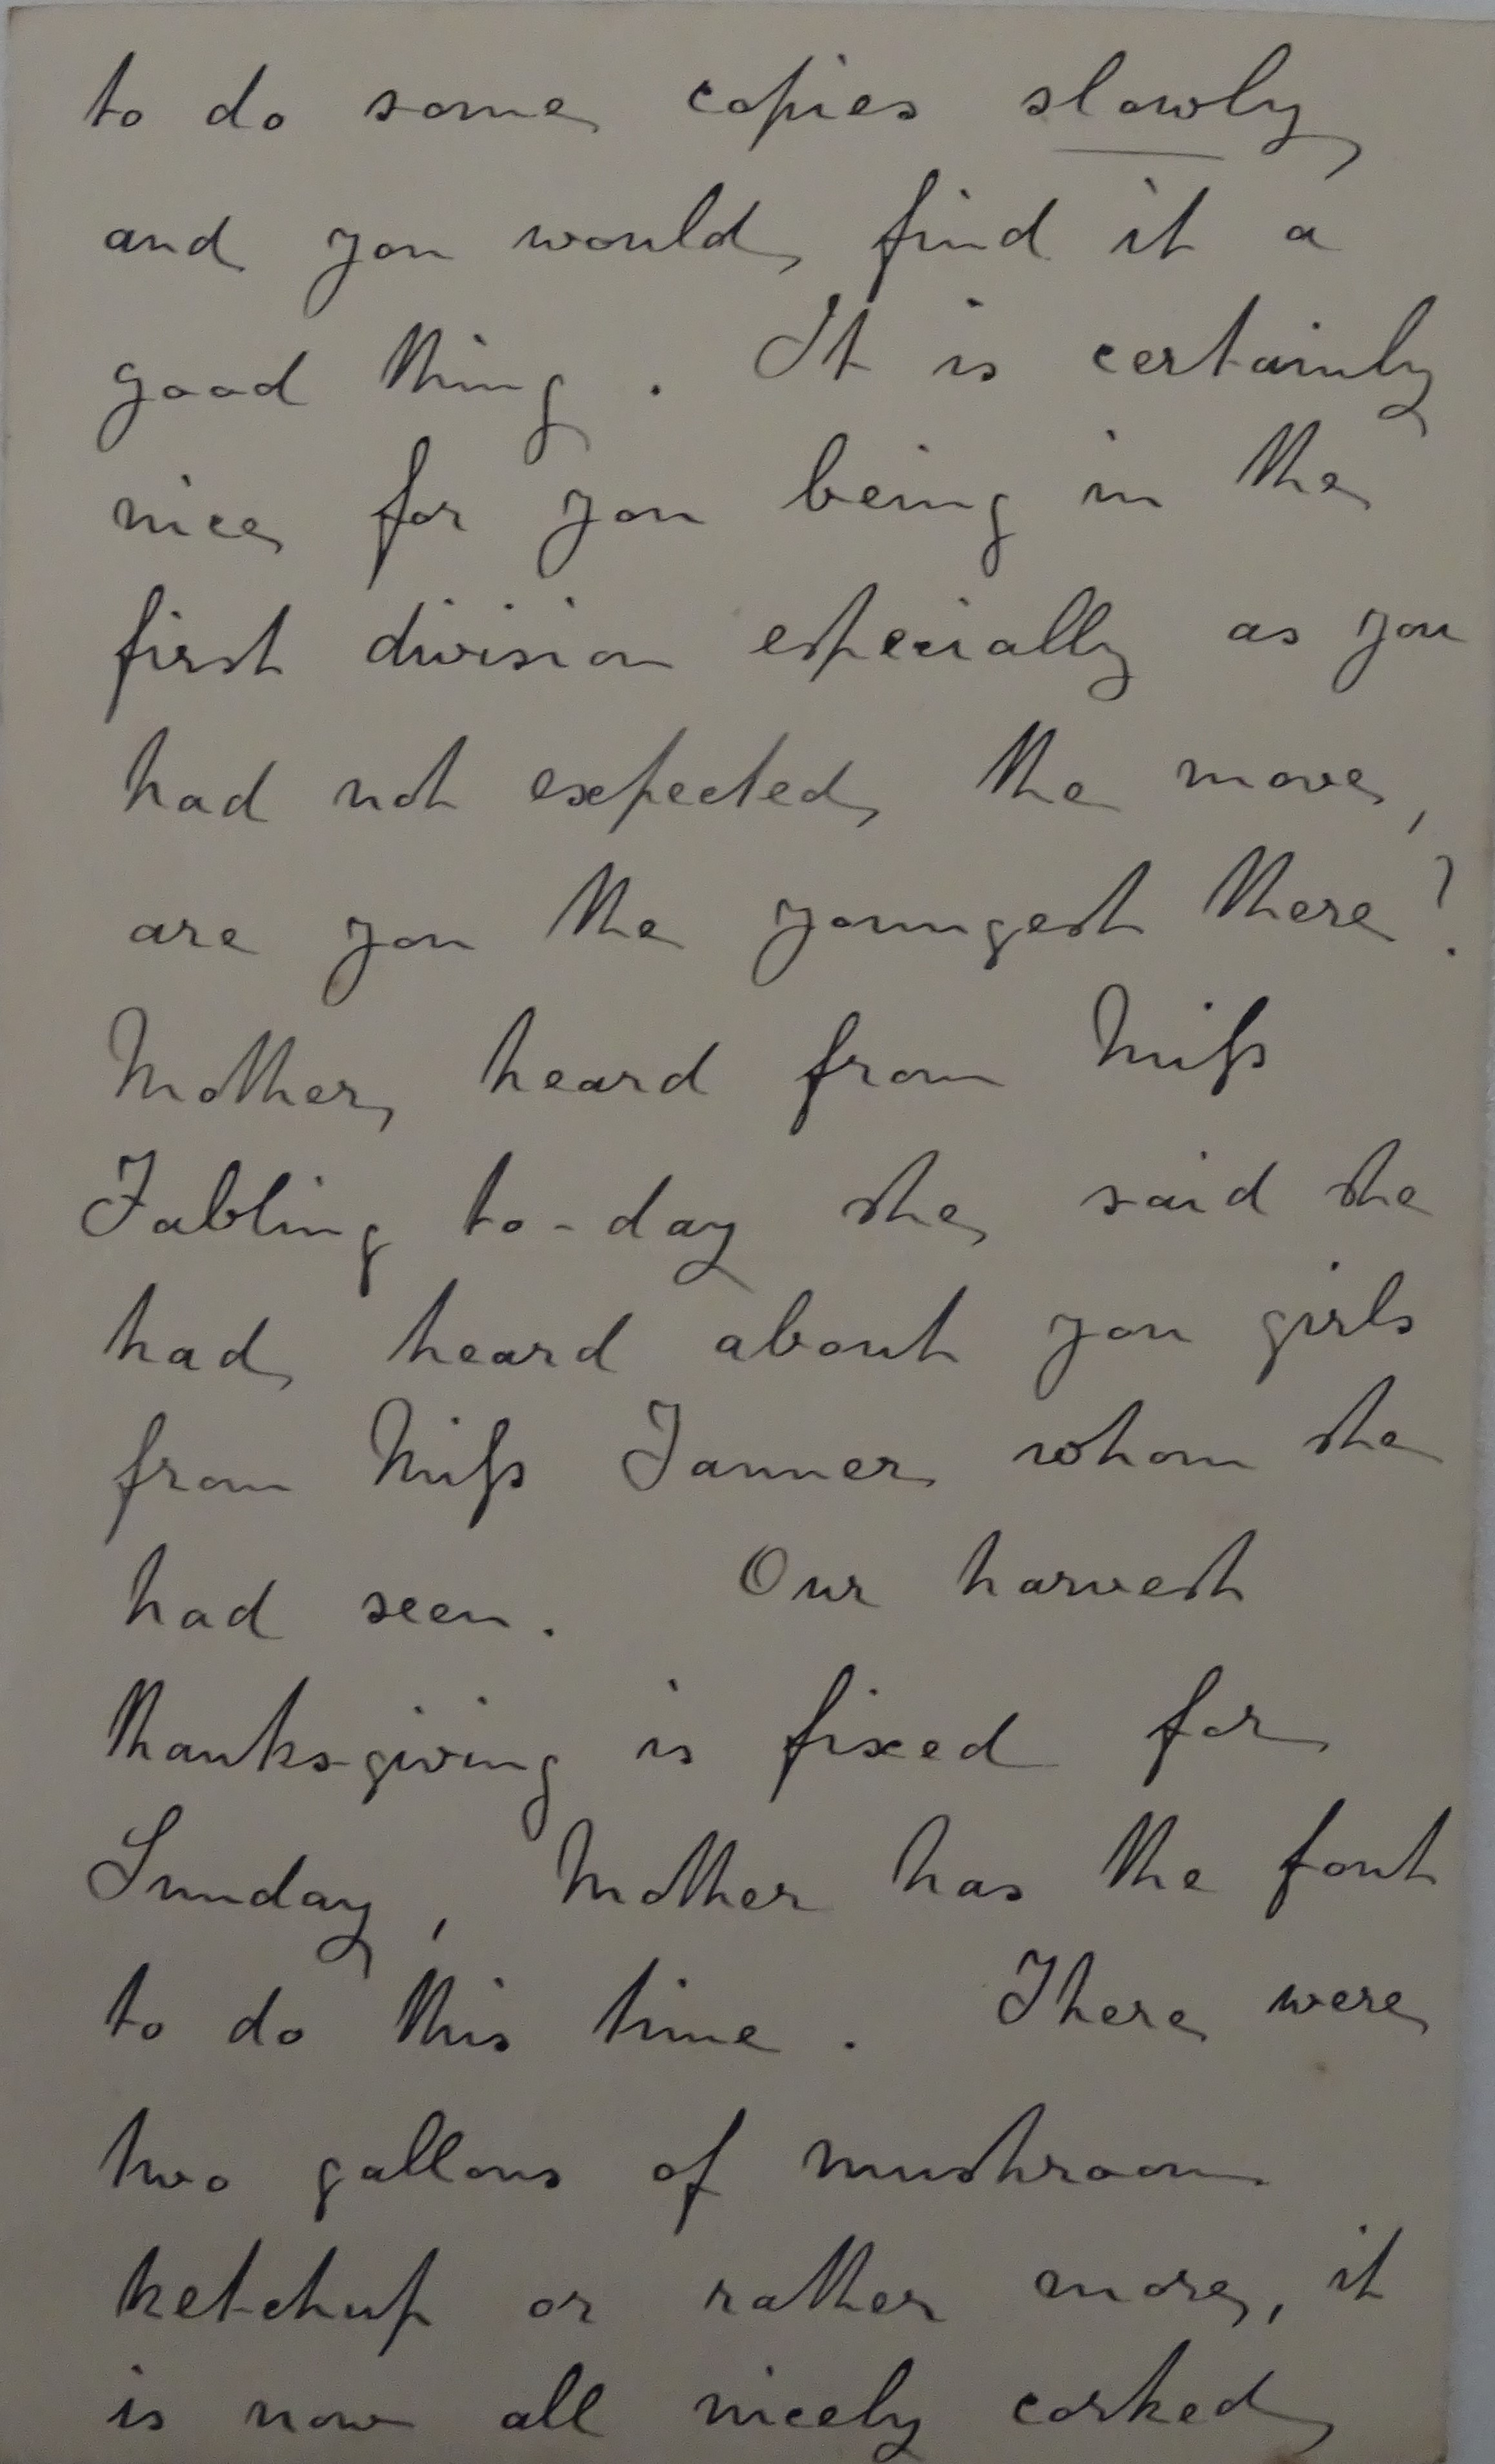 to do some copies slowly
and you would find it a
good thing. It is certainly
nice for you being in the
first division especially as you
had not expected the move,
are you the youngest there?
Mother heard from Miss
Fabling to-day she said she
had heard about you girls
from Miss Tanner whom she
had seen. Our harvest
thanks-giving is fixed for
Sunday, Mother has the font
to do this time. There were
two gallons of mushroom
ketchup or rather more, it
is now all nicely corked